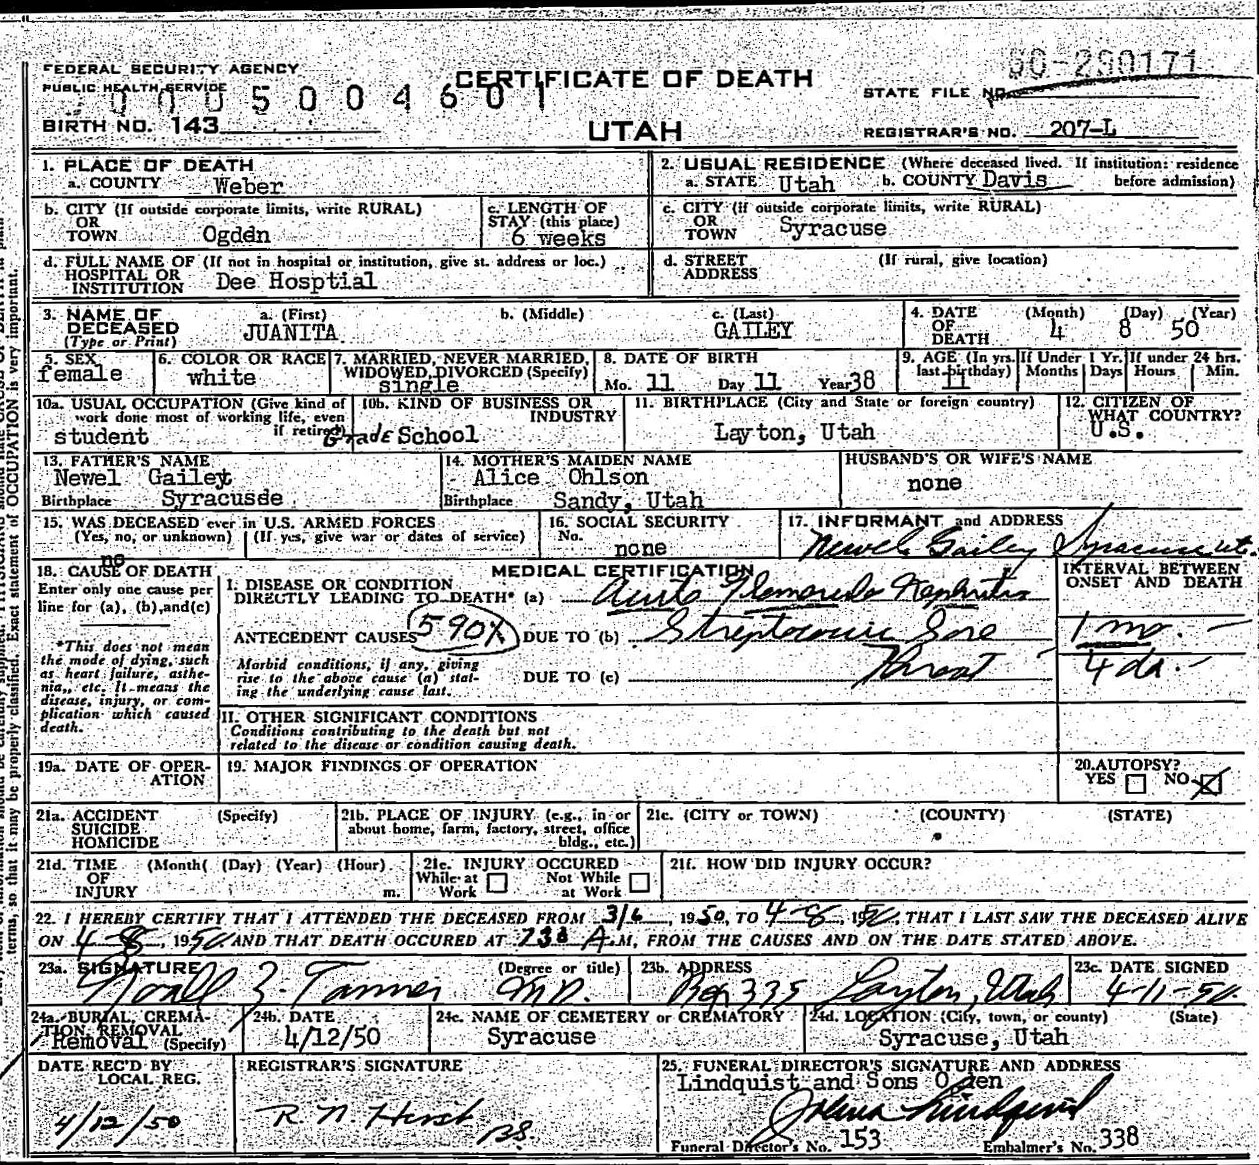 FEDERAL SECURITY AGENCY
PUBLIC HEALTH SERVICE
0005004601
BIRTH NO. 143
CERTIFICATE OF DEATH
UTAH
STATE FILE NO. 290171
REGISTRAR'S NO. 207-L
1. PLACE OF DEATH
a. COUNTY Weber
2. USUAL RESIDENCE (Where deceased lived. If institution: residence
a. STATE Utah b. COUNTY Davis before admission)
b. CITY (If outside corporate limits, write RURAL)
OR
TOWN Ogden
c. LENGTH OF
STAY (this place)
6 weeks
c. CITY (if outside corporate limits, write RURAL)
OR
TOWN Syracuse
d. FULL NAME OF (If not in hospital or institution, give st. address or loc.)
HOSPITAL OR
INSTITUTION Dee Hosptial
d. STREET (If rural, give location)
ADDRESS
3. NAME OF a. (First) b. (Middle) c. (Last)
DECEASED JUANITA GAILEY
(Type or Print)
4. DATE (Month) (Day) (Year)
OF 4 8 50
DEATH
5. SEX
female
6. COLOR OR RACE
white
7. MARRIED, NEVER MARRIED,
WIDOWED, DIVORCED (Specify)
single
8. DATE OF BIRTH
Mo. 11 Day 11 Year 38
9. AGE (In yrs. If Under 1 Yr. If under 24 hrs.
last birthday) Months Days Hours Min.
11
10a. USUAL OCCUPATION (Give kind of
work done most of working life, even
if retired)
student
10b. KIND OF BUSINESS OR
INDUSTRY
Grade School
11. BIRTHPLACE (City and State or foreign country)
Layton, Utah
12. CITIZEN OF
WHAT COUNTRY?
U.S.
13. FATHER'S NAME
Newel Gailey
Birthplace Syracusde
14. MOTHER'S MAIDEN NAME
Alice Ohlson
Birthplace Sandy, Utah
HUSBAND'S OR WIFE'S NAME
none
15. WAS DECEASED ever in U.S. ARMED FORCES
(Yes, no, or unknown) (If yes, give war or dates of service)
no
16. SOCIAL SECURITY
No.
none
17. INFORMANT and ADDRESS
Newel Gailey Syracuse Ut.
18. CAUSE OF DEATH
Enter only one cause per
line for (a), (b), and (c)
*This does not mean
the mode of dying, such
as heart failure, asthe-
nia, etc. It means the
disease, injury, or com-
plication which caused
death.
MEDICAL CERTIFICATION
I. DISEASE OR CONDITION
DIRECTLY LEADING TO DEATH* (a) Nephritis
ANTECEDENT CAUSES 590X DUE TO (b) Sore
Morbid conditions, if any, giving
rise to the above cause (a) stat-
ing the underlying cause last.
DUE TO (c) Throat
INTERVAL BETWEEN
ONSET AND DEATH
1 mo.
4 da.
II. OTHER SIGNIFICANT CONDITIONS
Conditions contributing to the death but not
related to the disease or condition causing death.
19a. DATE OF OPER-
ATION
19. MAJOR FINDINGS OF OPERATION
20. AUTOPSY?
YES NO
21a. ACCIDENT (Specify)
SUICIDE
HOMICIDE
21b. PLACE OF INJURY (e.g., in or
about home, farm, factory, street, office
bldg., etc.)
21c. (CITY or TOWN) (COUNTY) (STATE)
21d. TIME (Month( (Day) (Year) (Hour)
OF
INJURY m.
21e. INJURY OCCURED
While at Not While
Work at Work
21f. HOW DID INJURY OCCUR?
22. I HEREBY CERTIFY THAT I ATTENDED THE DECEASED FROM 3/6, 1950, TO 4-8, 1950, THAT I LAST SAW THE DECEASED ALIVE
ON 4-8, 1950 AND THAT DEATH OCCURED AT A.M, FROM THE CAUSES AND ON THE DATE STATED ABOVE.
23a. SIGNATURE (Degree or title)
Noall Z. Tanner M.D.
23b. ADDRESS
Box 335 Layton, Utah
23c. DATE SIGNED
4-11-50
24a. BURIAL, CREMA-
TION, REMOVAL
Removal (Specify)
24b. DATE
4/12/50
24c. NAME OF CEMETERY or CREMATORY
Syracuse
24d. LOCATION (City, town, or county) (State)
Syracuse, Utah
DATE REC'D BY
LOCAL REG.
4/12/50
REGISTRAR'S SIGNATURE
R. N. Hirst
25. FUNERAL DIRECTOR'S SIGNATURE AND ADDRESS
Lindquist and Sons Ogden
Lindquist
Funeral Director's No. 153 Embalmer's No. 338